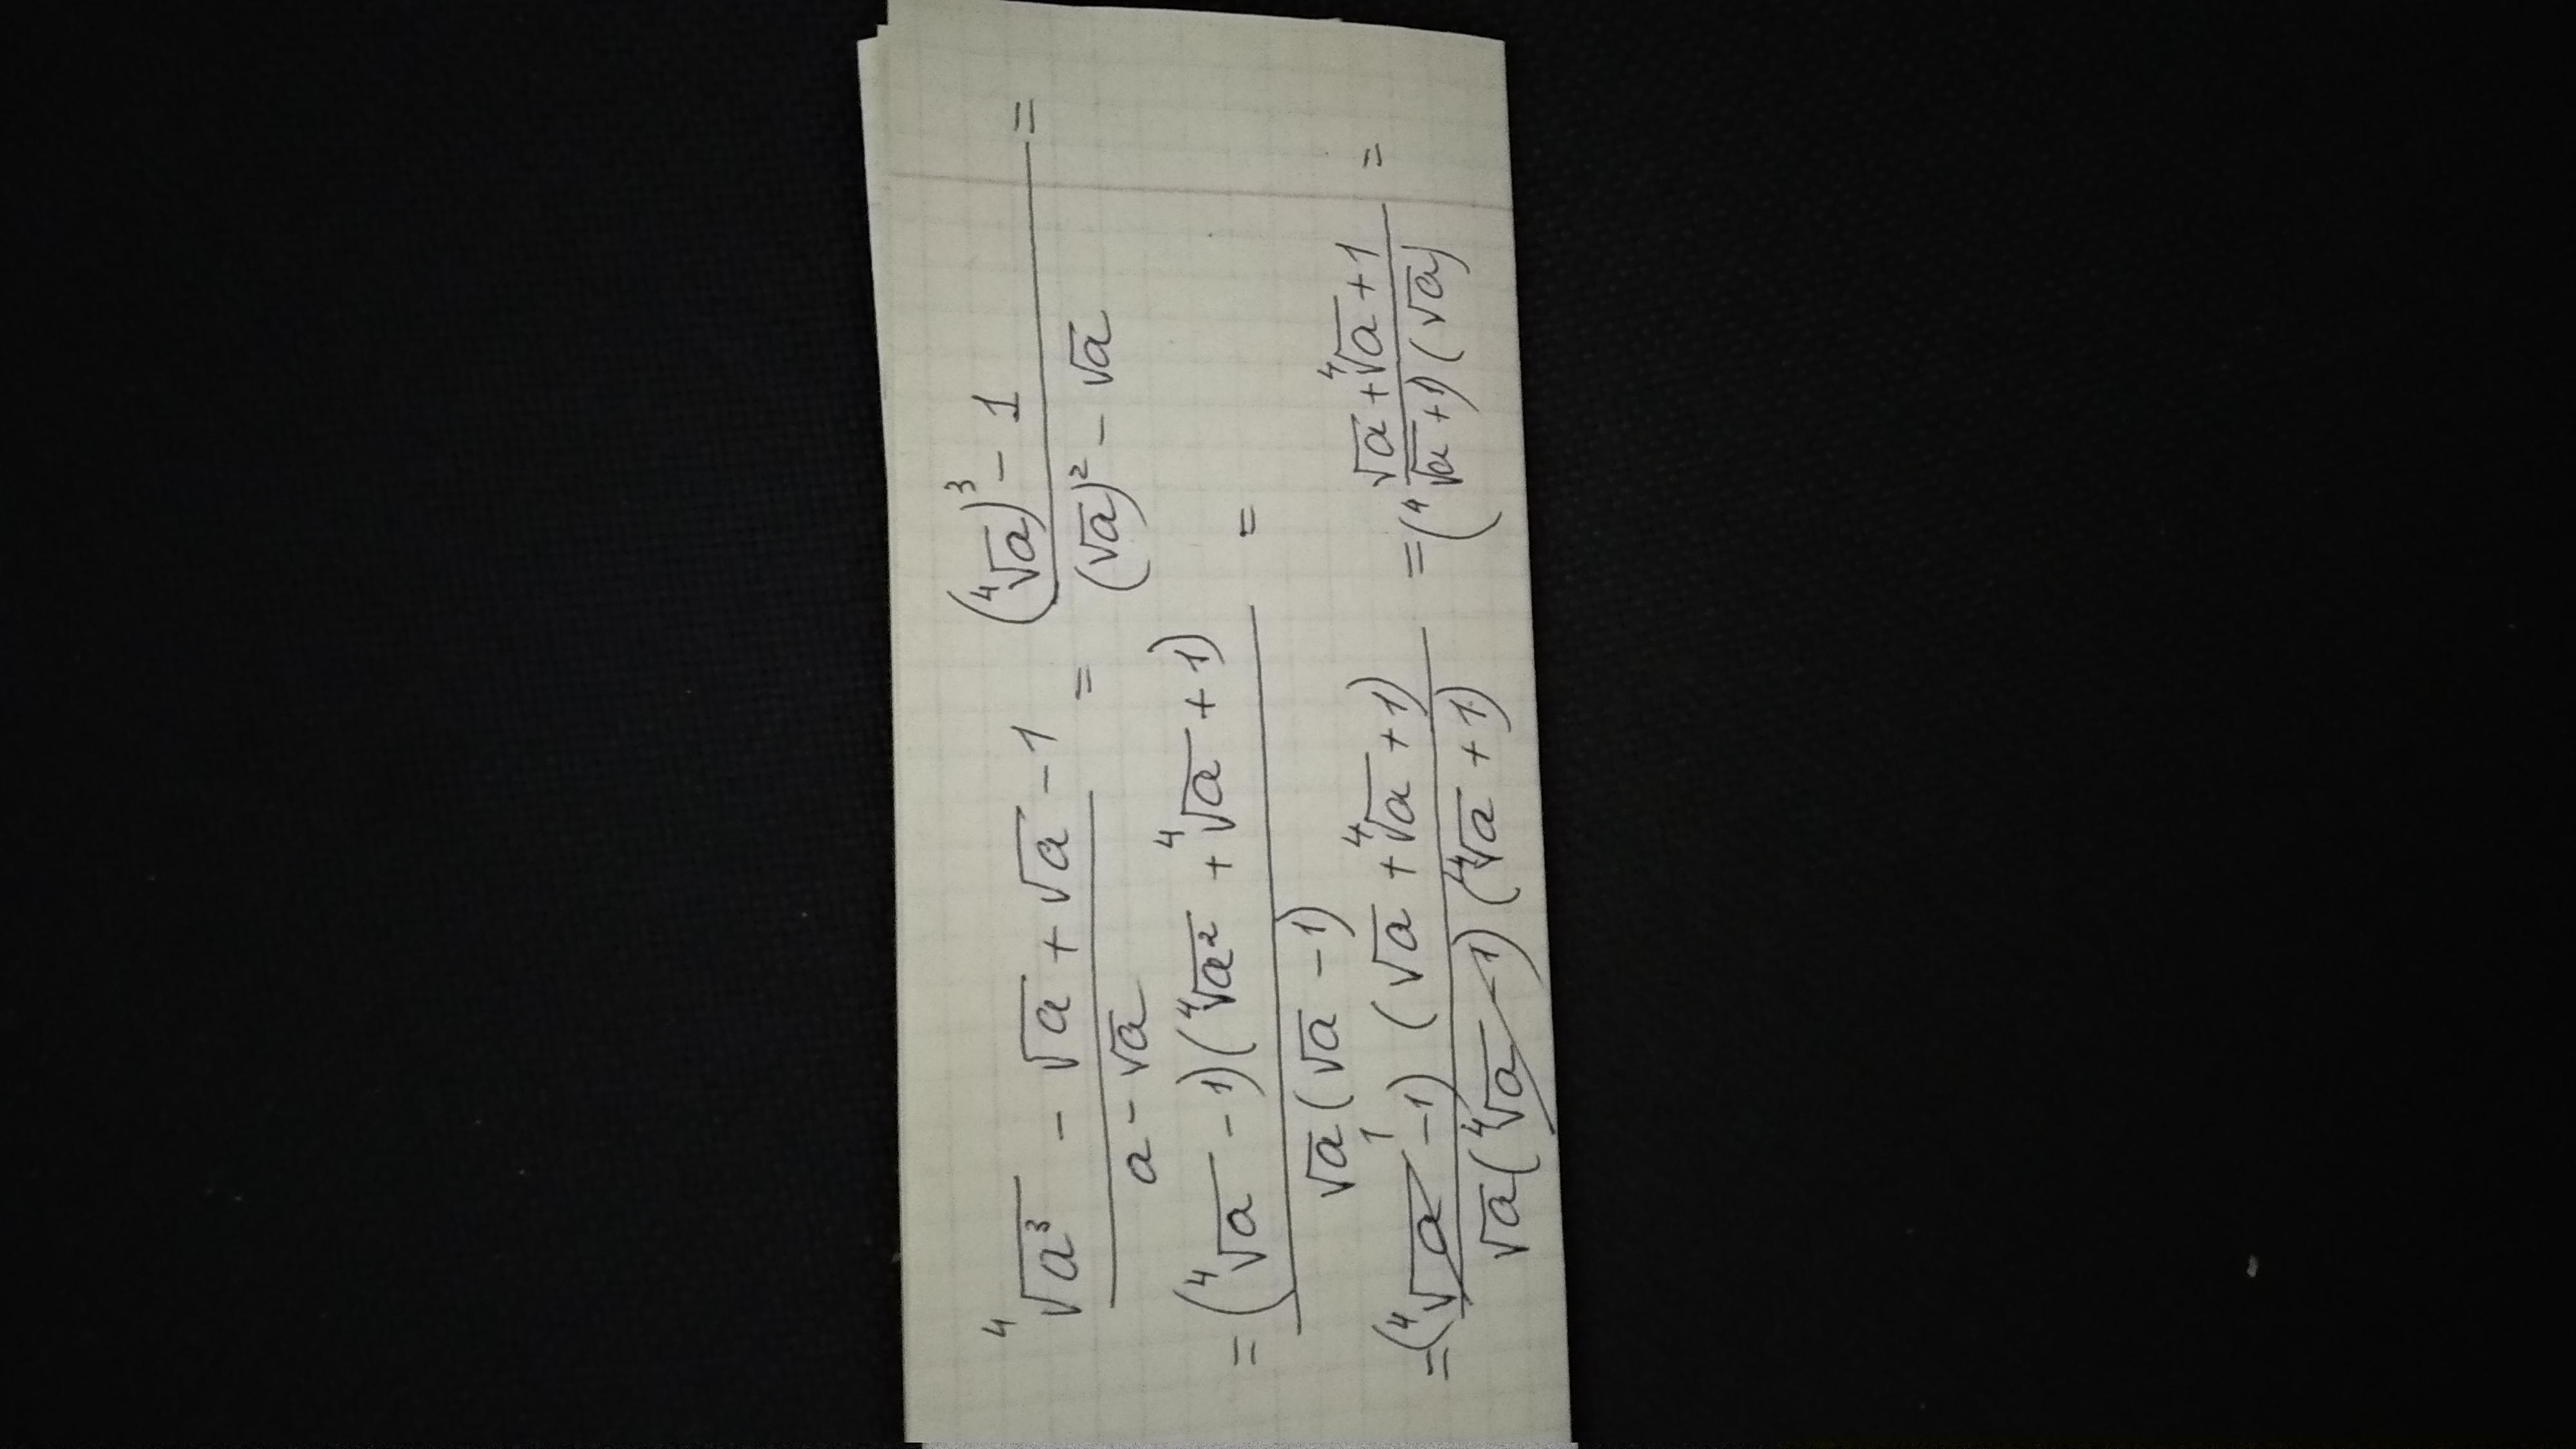 (⁴√a³ - √a + √a - 1) / (a - √a) = ((⁴√a)³ - 1) / ((√a)² - √a) =
= ((⁴√a - 1)(⁴√a² + ⁴√a + 1)) / (√a(√a - 1)) =
= ((⁴√a - 1)¹ (√a + ⁴√a + 1)) / (√a(⁴√a - 1)(⁴√a + 1)) = (√a + ⁴√a + 1) / ((⁴√a + 1)(√a)) =